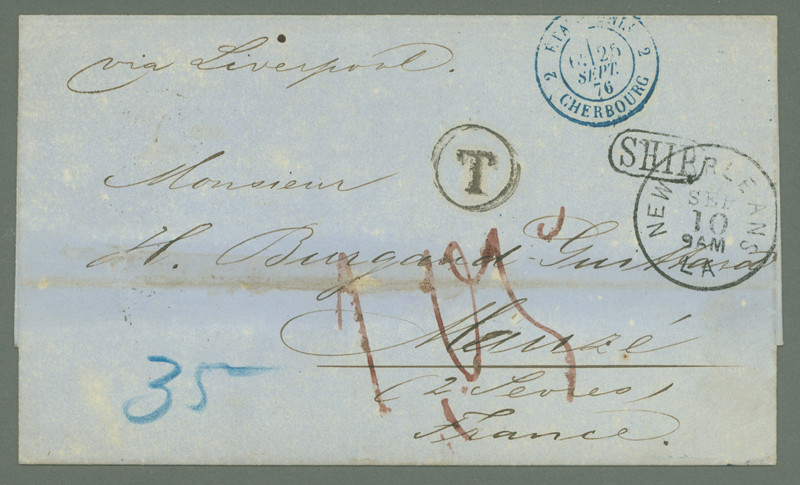 via Liverpool.
2 ETATS-UNIS 2
25
SEPT.
76
CHERBOURG
T
SHIP
NEW ORLEANS
SEP
10
9AM
LA
Monsieur
H. Burgaud-
Mauzé
(2 Sèvres)
France.
35